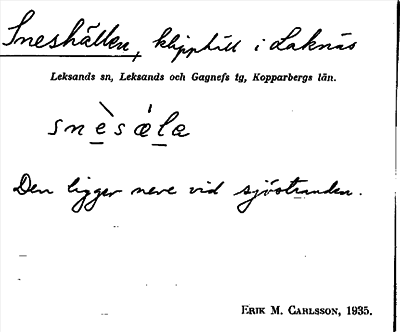 Sneshällen, klipphäll i Laknäs
Leksands sn, Leksands och Gagnefs tg, Kopparbergs län.
snè̲sǽl̲a
Den ligger nere vid sjöstranden.
ERIK M. CARLSSON, 1935.